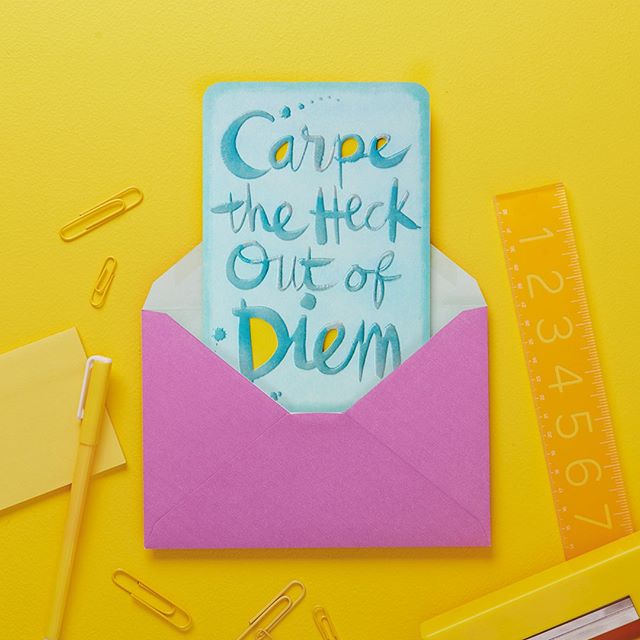 Carpe
the Heck
Out of
Diem
1 2 3 4 5 6 7